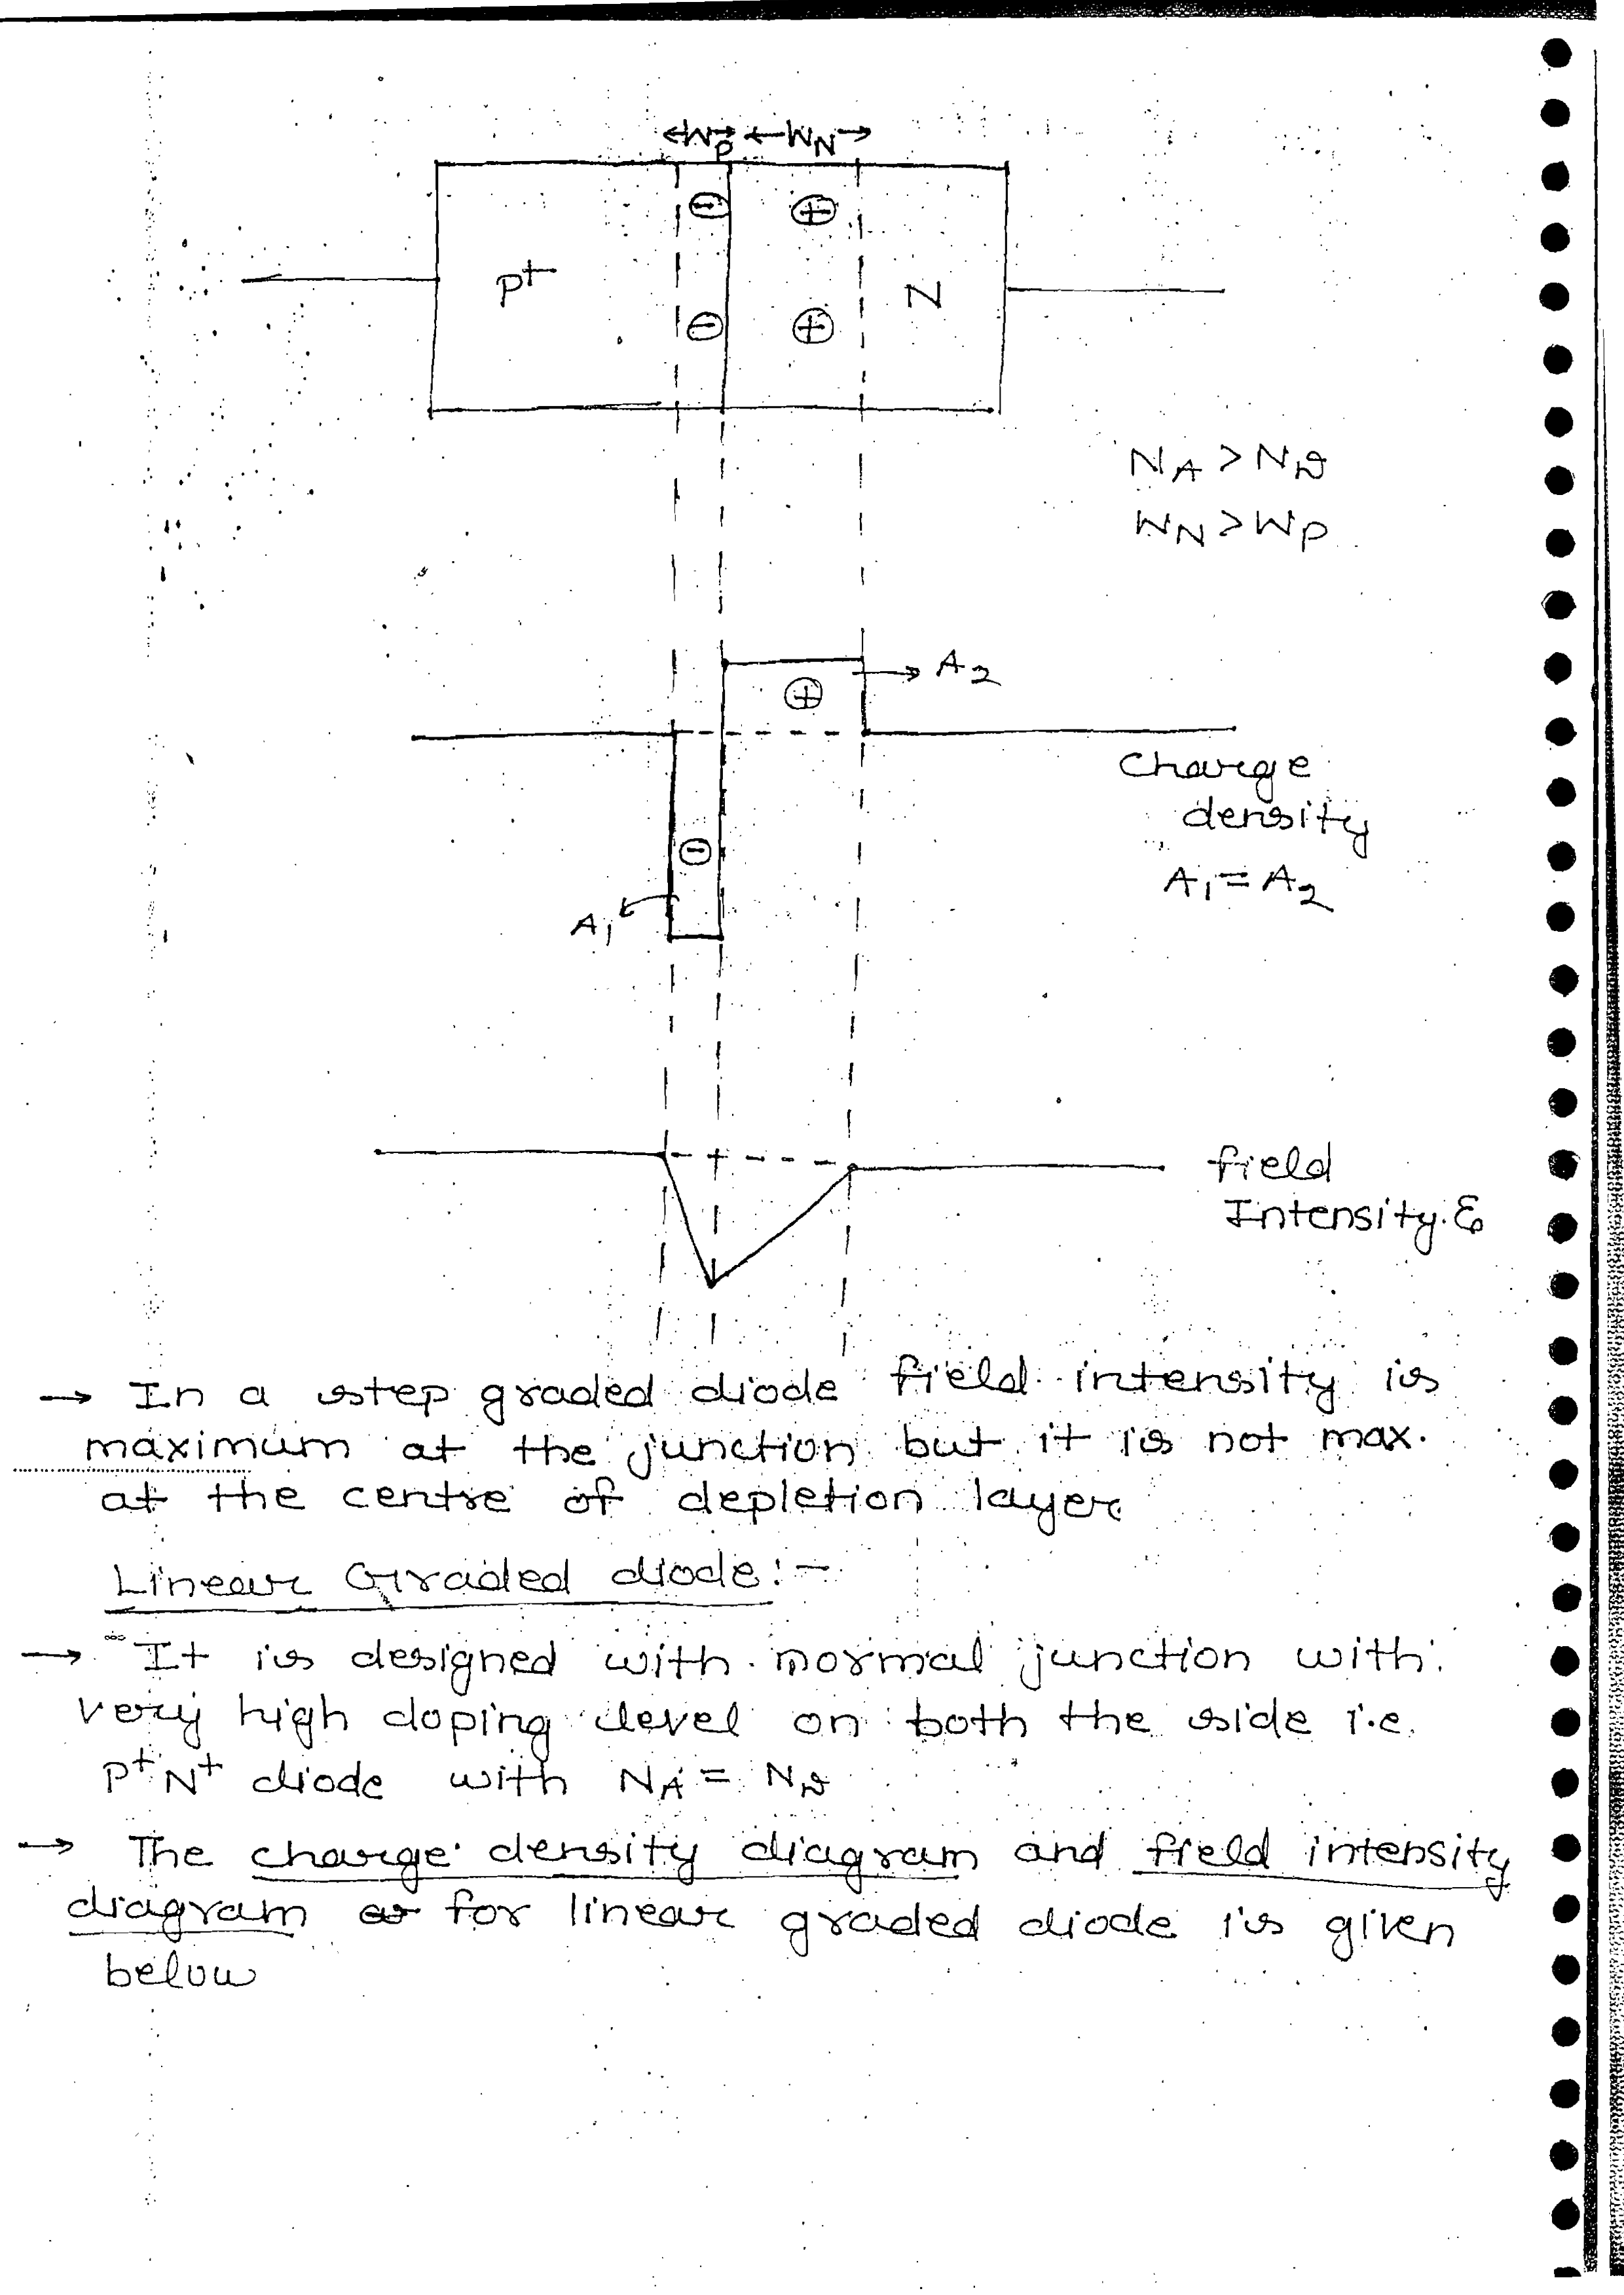 W_P W_N
⊖ ⊕
P⁺ N
⊖ ⊕
N_A > N_D
W_N > W_P
→ A₂
⊕
Charge
density
⊖
A₁ = A₂
A₁
field
Intensity. ε
→ In a step graded diode field intensity is
maximum at the junction but it is not max.
at the centre of depletion layer.
Linear Graded diode:-
→ It is designed with normal junction with
very high doping level on both the side i.e.
P⁺N⁺ diode with N_A = N_D
→ The charge density diagram and field intensity
diagram for linear graded diode is given
below